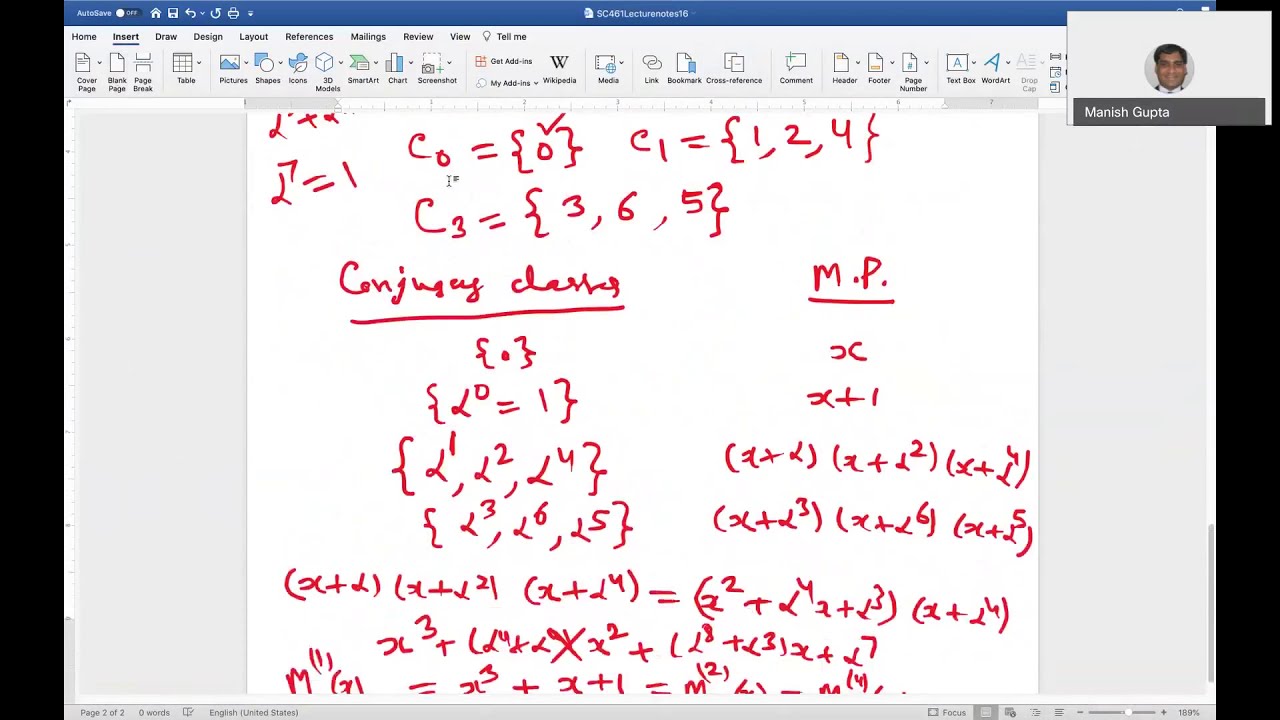 AutoSave OFF SC461Lecturenotes16
Home Insert Draw Design Layout References Mailings Review View Tell me
Cover Page Blank Page Page Break Table Pictures Shapes Icons 3D Models SmartArt Chart Screenshot Get Add-ins My Add-ins Wikipedia Media Link Bookmark Cross-reference Comment Header Footer Page Number Text Box WordArt Drop Cap
Manish Gupta
C₀ = {0} C₁ = {1, 2, 4}
α⁷ = 1
C₃ = {3, 6, 5}
Conjugacy classes M.P.
{0} x
{α⁰ = 1} x+1
{α¹, α², α⁴} (x+α) (x+α²) (x+α⁴)
{α³, α⁶, α⁵} (x+α³) (x+α⁶) (x+α⁵)
(x+α) (x+α²) (x+α⁴) = (x² + α⁴x + α³) (x+α⁴)
x³ + (α⁴+α⁴)x² + (α⁸+α³)x + α⁷
M⁽¹⁾(x) = x³ + x+1 = M⁽²⁾(x) = M⁽⁴⁾
Page 2 of 2 0 words English (United States) Focus 189%